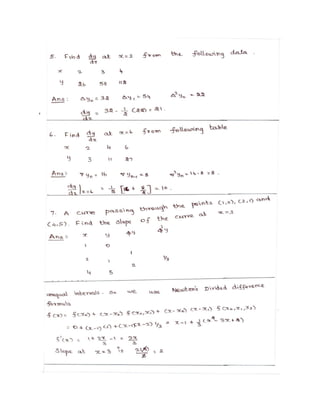 5. Find dy/dx at x=2 from the following data.
x 2 3 4
y 26 58 112
Ans: Δy₀ = 32 Δy₁ = 54 Δ²y₀ = 22
dy/dx = 32 - 1/2 (22) = 21.
6. Find dy/dx at x=6 from following table
x 2 4 6
y 3 11 27
Ans: ∇yₙ = 16 ∇yₙ₋₁ = 8 ∇²yₙ = 16-8 = 8.
dy/dx]x=6 = 1/2 [16 + 8/2] = 10.
7. A curve passing through the points (1,0), (2,1) and
(4,5). Find the slope of the curve at x=3
Ans: x y
1 0
1
2 1 1/3
4 5
unequal intervals. So we use Newton's Divided difference
formula
f(x) = f(x₀) + (x-x₀) f(x₀,x₁) + (x-x₀)(x-x₁) f(x₀,x₁,x₂)
= 0+(x-1)(1)+(x-1)(x-2) 1/3 = x-1+ 1/3 (x² - 3x+2)
f'(x) = 1+ 2x/3 -1 = 2x/3
Slope at x=3 is 2(3)/3 = 2